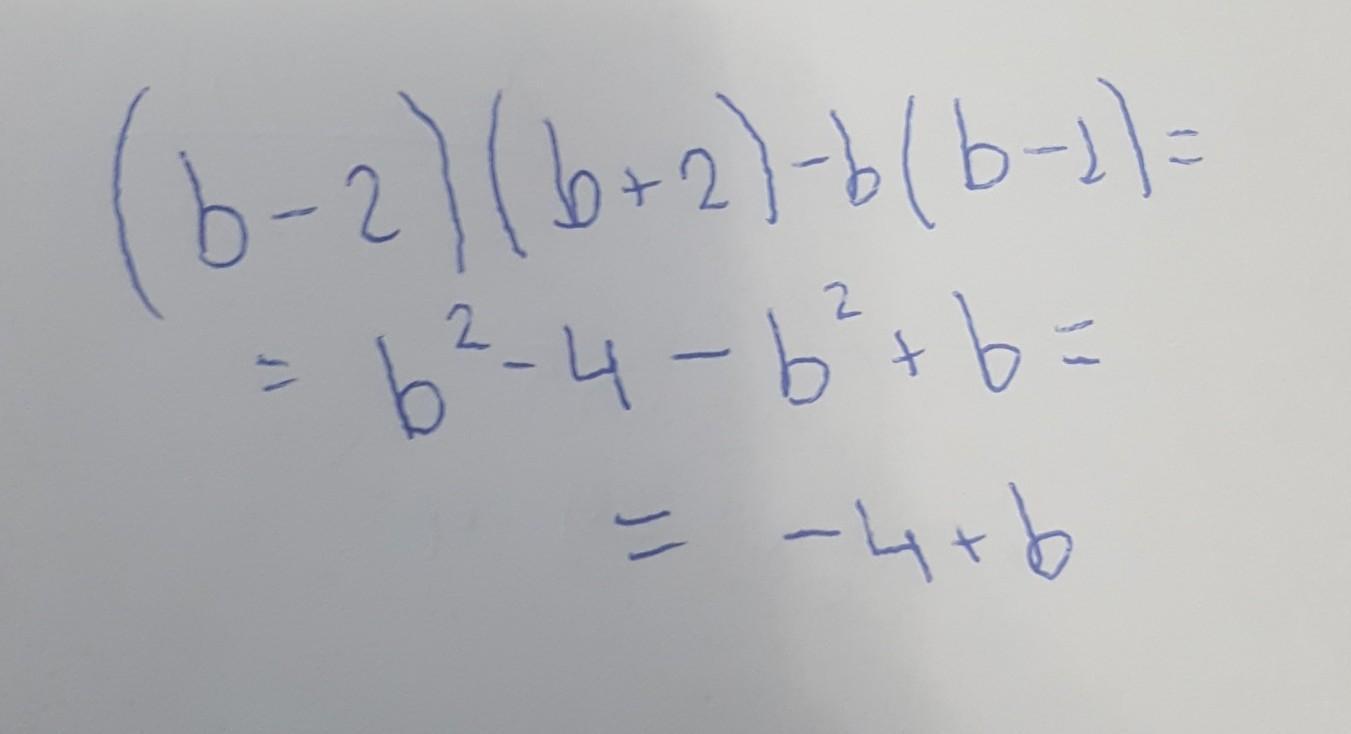 (b-2)(b+2)-b(b-1)=
= b²-4-b²+b=
= -4+b